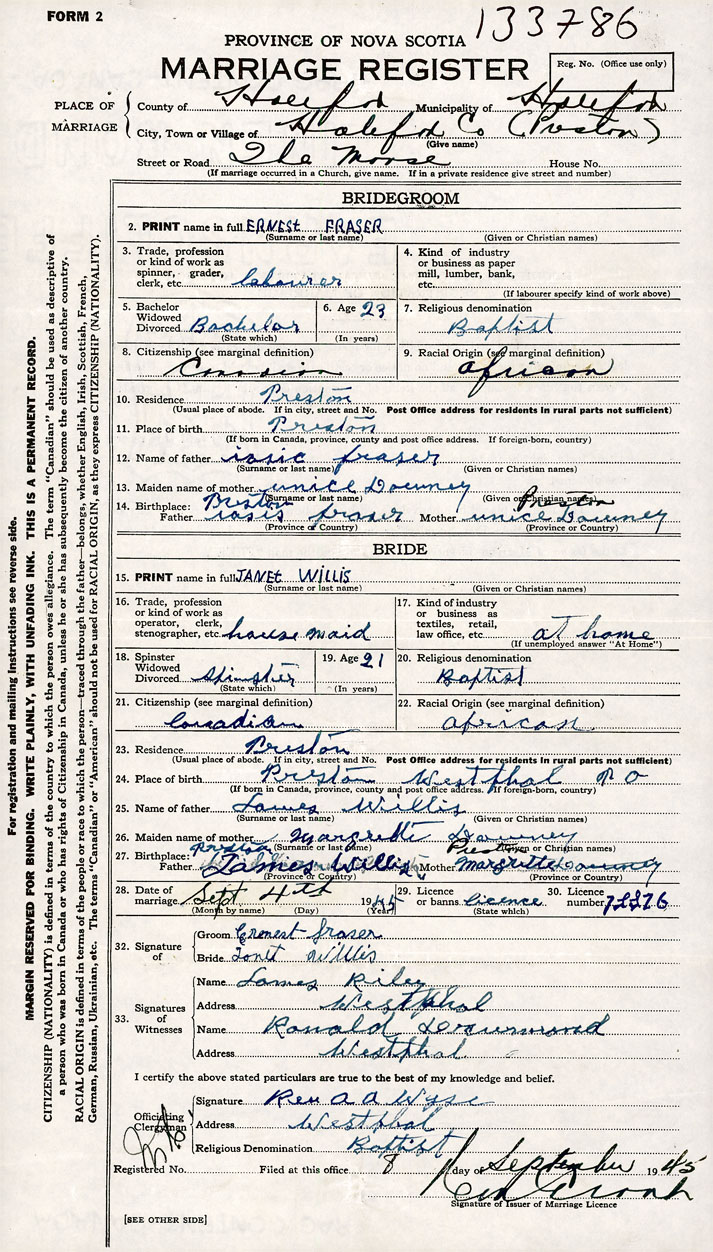 FORM 2
133786
PROVINCE OF NOVA SCOTIA
MARRIAGE REGISTER
Reg. No. (Office use only)
PLACE OF MARRIAGE
County of Halifax Municipality of Halifax
City, Town or Village of Halifax Co (Preston)
(Give name)
Street or Road The Manse House No.
(If marriage occurred in a Church, give name. If in a private residence give street and number)
BRIDEGROOM
2. PRINT name in full ERNEST FRASER
(Surname or last name) (Given or Christian names)
3. Trade, profession or kind of work as spinner, grader, clerk, etc. labourer
4. Kind of industry or business as paper mill, lumber, bank, etc.
(If labourer specify kind of work above)
5. Bachelor Widowed Divorced Bachelor
(State which)
6. Age 23
(In years)
7. Religious denomination
Baptist
8. Citizenship (see marginal definition)
9. Racial Origin (see marginal definition)
African
10. Residence Preston
(Usual place of abode. If in city, street and No. Post Office address for residents in rural parts not sufficient)
11. Place of birth Preston
(If born in Canada, province, county and post office address. If foreign-born, country)
12. Name of father iasic fraser
(Surname or last name) (Given or Christian names)
13. Maiden name of mother unice Downey
(Surname or last name) (Given or Christian names)
Preston Preston
14. Birthplace: Father iasis fraser Mother unice Downey
(Province or Country) (Province or Country)
BRIDE
15. PRINT name in full JANET WILLIS
(Surname or last name) (Given or Christian names)
16. Trade, profession or kind of work as operator, clerk, stenographer, etc. house maid
17. Kind of industry or business as textiles, retail, law office, etc. at home
(If unemployed answer "At Home")
18. Spinster Widowed Divorced Spinster
(State which)
19. Age 21
(In years)
20. Religious denomination
Baptist
21. Citizenship (see marginal definition)
Canadian
22. Racial Origin (see marginal definition)
African
23. Residence Preston
(Usual place of abode. If in city, street and No. Post Office address for residents in rural parts not sufficient)
24. Place of birth Preston Westphal P O
(If born in Canada, province, county and post office address. If foreign-born, country)
25. Name of father James Willis
(Surname or last name) (Given or Christian names)
26. Maiden name of mother Margrette Downey
(Surname or last name) (Given or Christian names)
Preston Preston
27. Birthplace: Father James Willis Mother Margrette Downey
(Province or Country) (Province or Country)
28. Date of marriage Sept 4th 1945
(Month by name) (Day) (Year)
29. Licence or banns licence
(State which)
30. Licence number
32. Signature of
Groom Ernest fraser
Bride Janet Willis
33. Signatures of Witnesses
Name James Riley
Address Westphal
Name Ronald
Address Westphal
I certify the above stated particulars are true to the best of my knowledge and belief.
Officiating Clergyman
Signature Rev A A Wyse
Address Westphal
Religious Denomination Baptist
Registered No. Filed at this office 8 day of September 1945
Signature of Issuer of Marriage Licence
[SEE OTHER SIDE]
For registration and mailing instructions see reverse side.
MARGIN RESERVED FOR BINDING. WRITE PLAINLY, WITH UNFADING INK. THIS IS A PERMANENT RECORD.
CITIZENSHIP (NATIONALITY) is defined in terms of the country to which the person owes allegiance. The term "Canadian" should be used as descriptive of
a person who was born in Canada or who has rights of Citizenship in Canada, unless he or she has subsequently become the citizen of another country.
RACIAL ORIGIN is defined in terms of the people or race to which the person—traced through the father—belongs, whether English, Irish, Scottish, French,
German, Russian, Ukrainian, etc. The terms "Canadian" or "American" should not be used for RACIAL ORIGIN, as they express CITIZENSHIP (NATIONALITY).